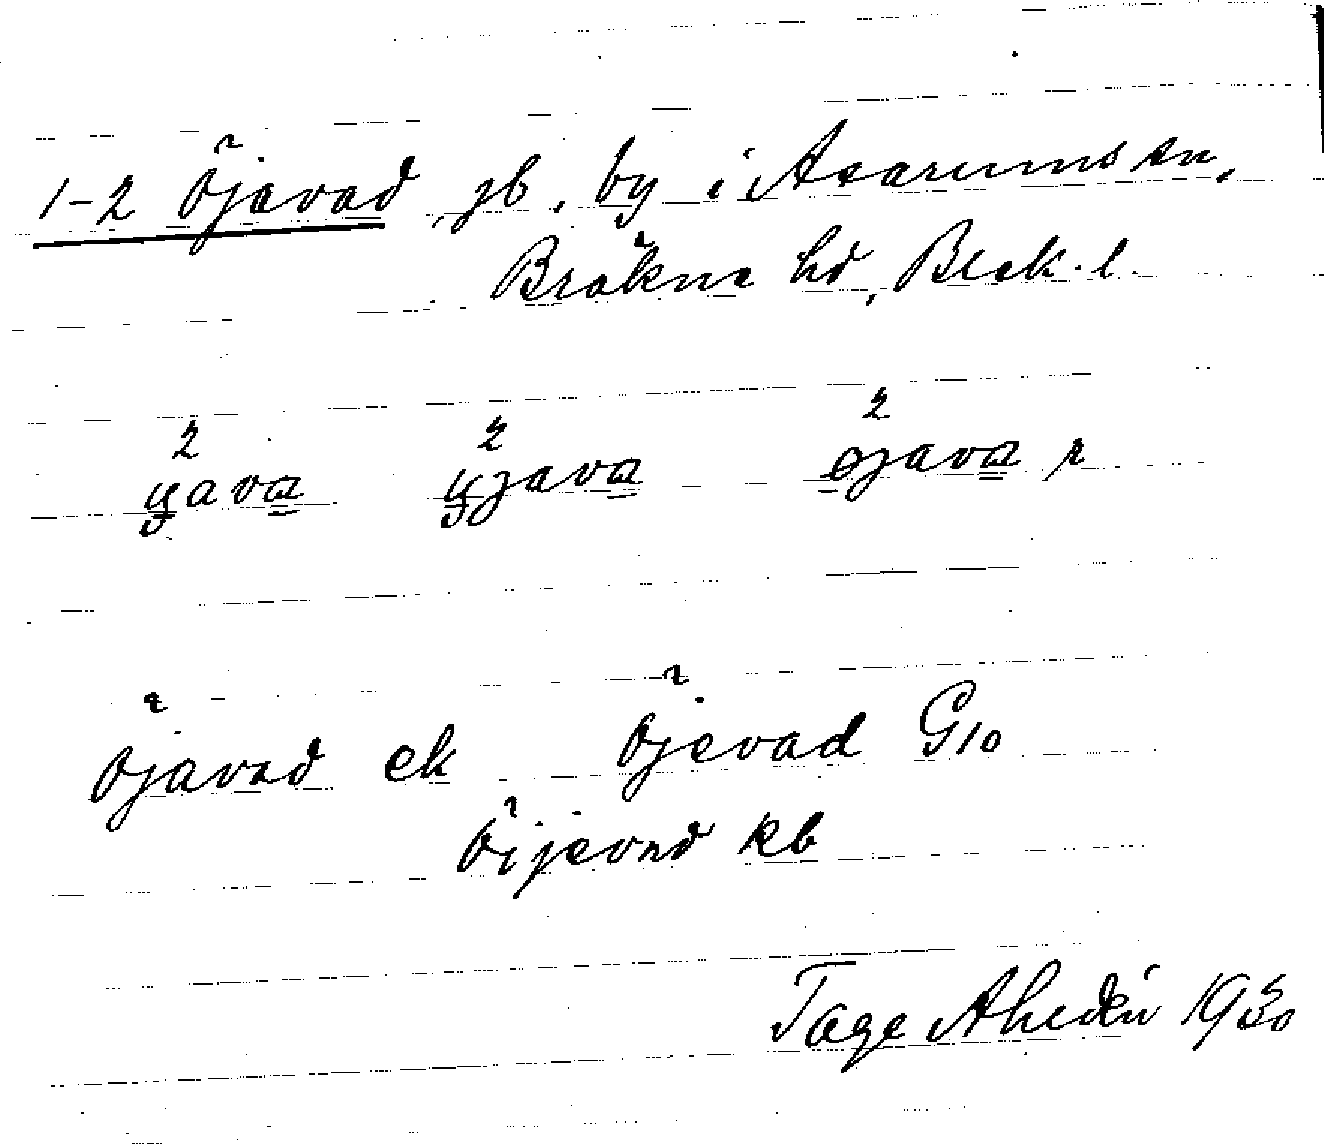 1-2 Öjavad, jb, by i Asarums sn,
Bräkne hd, Blek. l.
2 2 2
yava yjava øjava r
Öjavad ek Öjevad G10
Öijevad kb
Tage Ahldén 1930